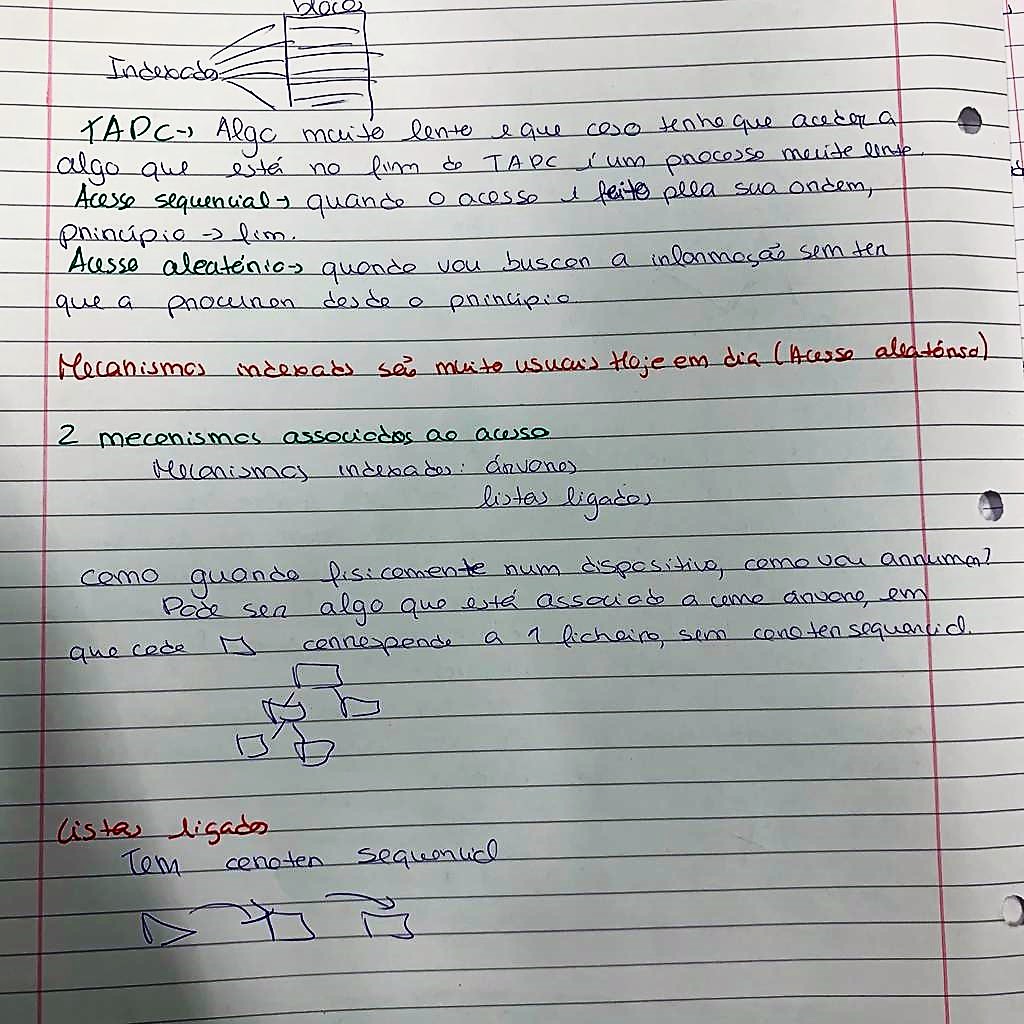 blocos
Indexado
TAPC → Algo muito lento e que caso tenha que aceder a
algo que está no fim do TAPC é um processo muito lento.
Acesso sequencial → quando o acesso é feito pela sua ordem,
princípio → fim.
Acesso aleatório → quando vou buscar a informação sem ter
que a procurar desde o princípio
Mecanismos indexados são muito usuais Hoje em dia (Acesso aleatório)
2 mecanismos associados ao acesso
Mecanismos indexados: árvores
listas ligadas
como guardo fisicamente num dispositivo, como vou arrumar?
Pode ser algo que está associado a uma árvore, em
que cada □ corresponde a 1 ficheiro, sem caráter sequencial.
Listas ligadas
Tem caráter sequencial